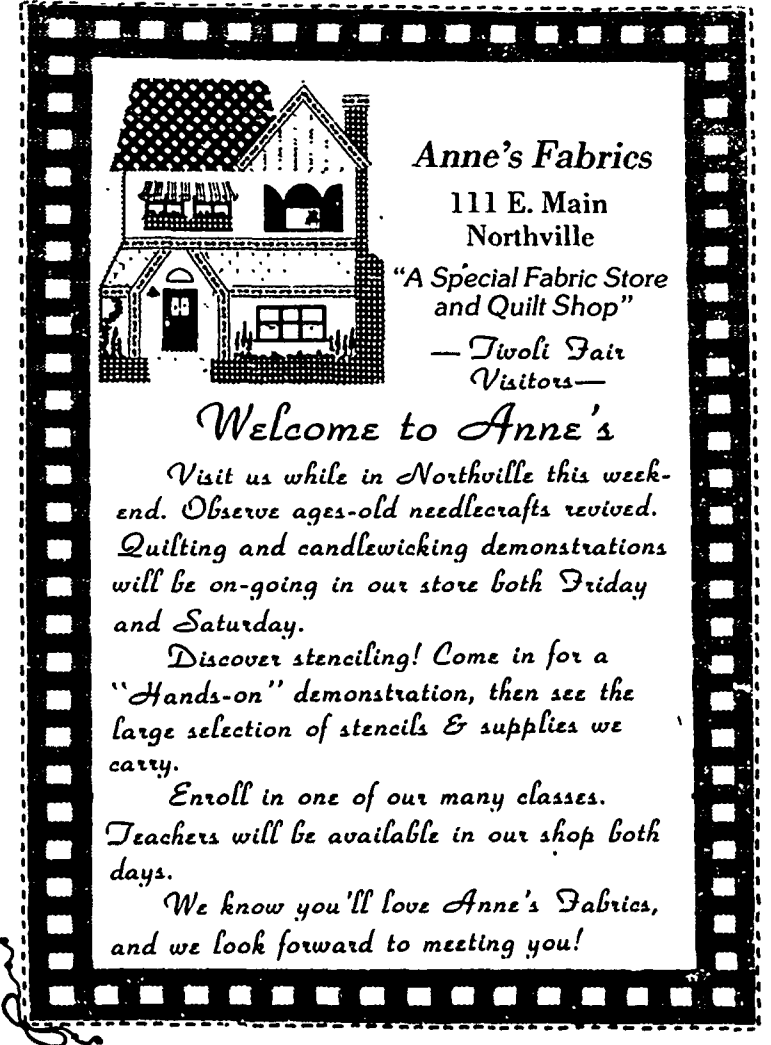 Anne's Fabrics
111 E. Main
Northville
"A Special Fabric Store
and Quilt Shop"
— Tivoli Fair
Visitors—
Welcome to Anne's
Visit us while in Northville this week-
end. Observe ages-old needlecrafts revived.
Quilting and candlewicking demonstrations
will be on-going in our store both Friday
and Saturday.
Discover stenciling! Come in for a
"Hands-on" demonstration, then see the
large selection of stencils & supplies we
carry.
Enroll in one of our many classes.
Teachers will be available in our shop both
days.
We know you'll love Anne's Fabrics,
and we look forward to meeting you!